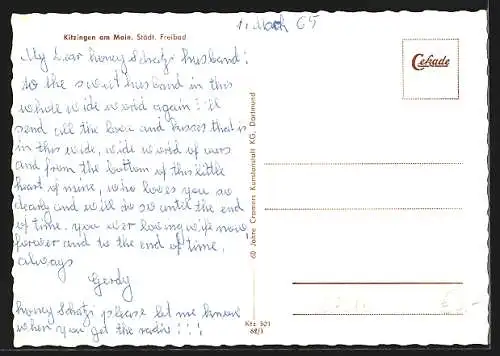 1. March 65
Kitzingen am Main. Städt. Freibad
My dear honey Schatzi husband!
to the sweet husband in this
whole wide world again I'll
send all the love and kisses that is
in this wide, wide world of ours
and from the bottom of this little
heart of mine, who loves you so
dearly and will do so until the end
of time. you ever loving wife now
forever and to the end of time,
always
Gerdy
honey Schatzi please let me know
when you got the radio!!!
Cekade
60 Jahre Cramers Kunstanstalt KG, Dortmund
Kitz 501